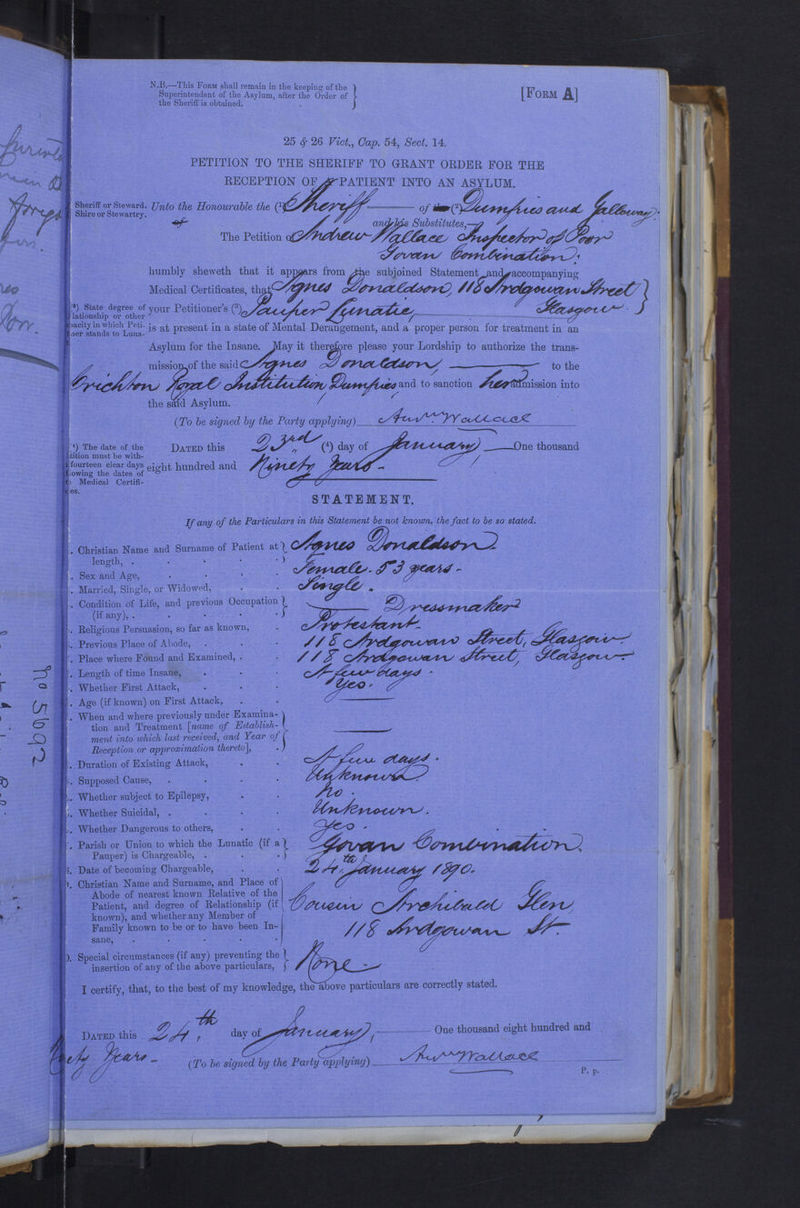 N.B.—This Form shall remain in the keeping of the
Superintendent of the Asylum, after the Order of
the Sheriff is obtained.
[Form A]
25 & 26 Vict., Cap. 54, Sect. 14.
PETITION TO THE SHERIFF TO GRANT ORDER FOR THE
RECEPTION OF PATIENT INTO AN ASYLUM.
Sheriff or Steward.
Shire or Stewartry.
Unto the Honourable the (1) Sheriff of (2) Dumfries and Galloway
and his Substitutes,
The Petition of Andrew Wallace Inspector of Poor
Govan Combination;
humbly sheweth that it appears from the subjoined Statement and accompanying
Medical Certificates, that Agnes Donaldson, 118 Ardgowan Street
Glasgow
(3) State degree of
lationship or other
pacity in which Peti-
oner stands to Luna-
your Petitioner's (3) Pauper Lunatic,
is at present in a state of Mental Derangement, and a proper person for treatment in an
Asylum for the Insane. May it therefore please your Lordship to authorize the trans-
mission of the said Agnes Donaldson, to the
Crichton Royal Institution Dumfries and to sanction her admission into
the said Asylum.
(To be signed by the Party applying) Andw Wallace
(4) The date of the
tition must be with-
fourteen clear days
lowing the dates of
Medical Certifi-
es.
Dated this 23rd (4) day of January One thousand
eight hundred and Ninety Years -
STATEMENT.
If any of the Particulars in this Statement be not known, the fact to be so stated.
. Christian Name and Surname of Patient at
length, . Agnes Donaldson
. Sex and Age, Female. 53 years -
. Married, Single, or Widowed, Single.
. Condition of Life, and previous Occupation
(if any), . Dressmaker
. Religious Persuasion, so far as known, Protestant -
. Previous Place of Abode, 118 Ardgowan Street, Glasgow
. Place where Found and Examined, 118 Ardgowan Street, Glasgow
. Length of time Insane, A few days.
. Whether First Attack, Yes.
. Age (if known) on First Attack,
. When and where previously under Examina-
tion and Treatment [name of Establish-
ment into which last received, and Year of
Reception or approximation thereto],
. Duration of Existing Attack, A few days.
. Supposed Cause, Unknown
. Whether subject to Epilepsy, No.
. Whether Suicidal, Unknown.
. Whether Dangerous to others, Yes.
. Parish or Union to which the Lunatic (if a
Pauper) is Chargeable, Govan Combination.
. Date of becoming Chargeable, 24th January 1890.
. Christian Name and Surname, and Place of
Abode of nearest known Relative of the
Patient, and degree of Relationship (if
known), and whether any Member of
Family known to be or to have been In-
sane, Cousin Archibald Glen,
118 Ardgowan St.
). Special circumstances (if any) preventing the
insertion of any of the above particulars, None
I certify, that, to the best of my knowledge, the above particulars are correctly stated.
Dated this 24th, day of January, One thousand eight hundred and
ety Years -
(To be signed by the Party applying) Andw Wallace
P. p.
no 5692